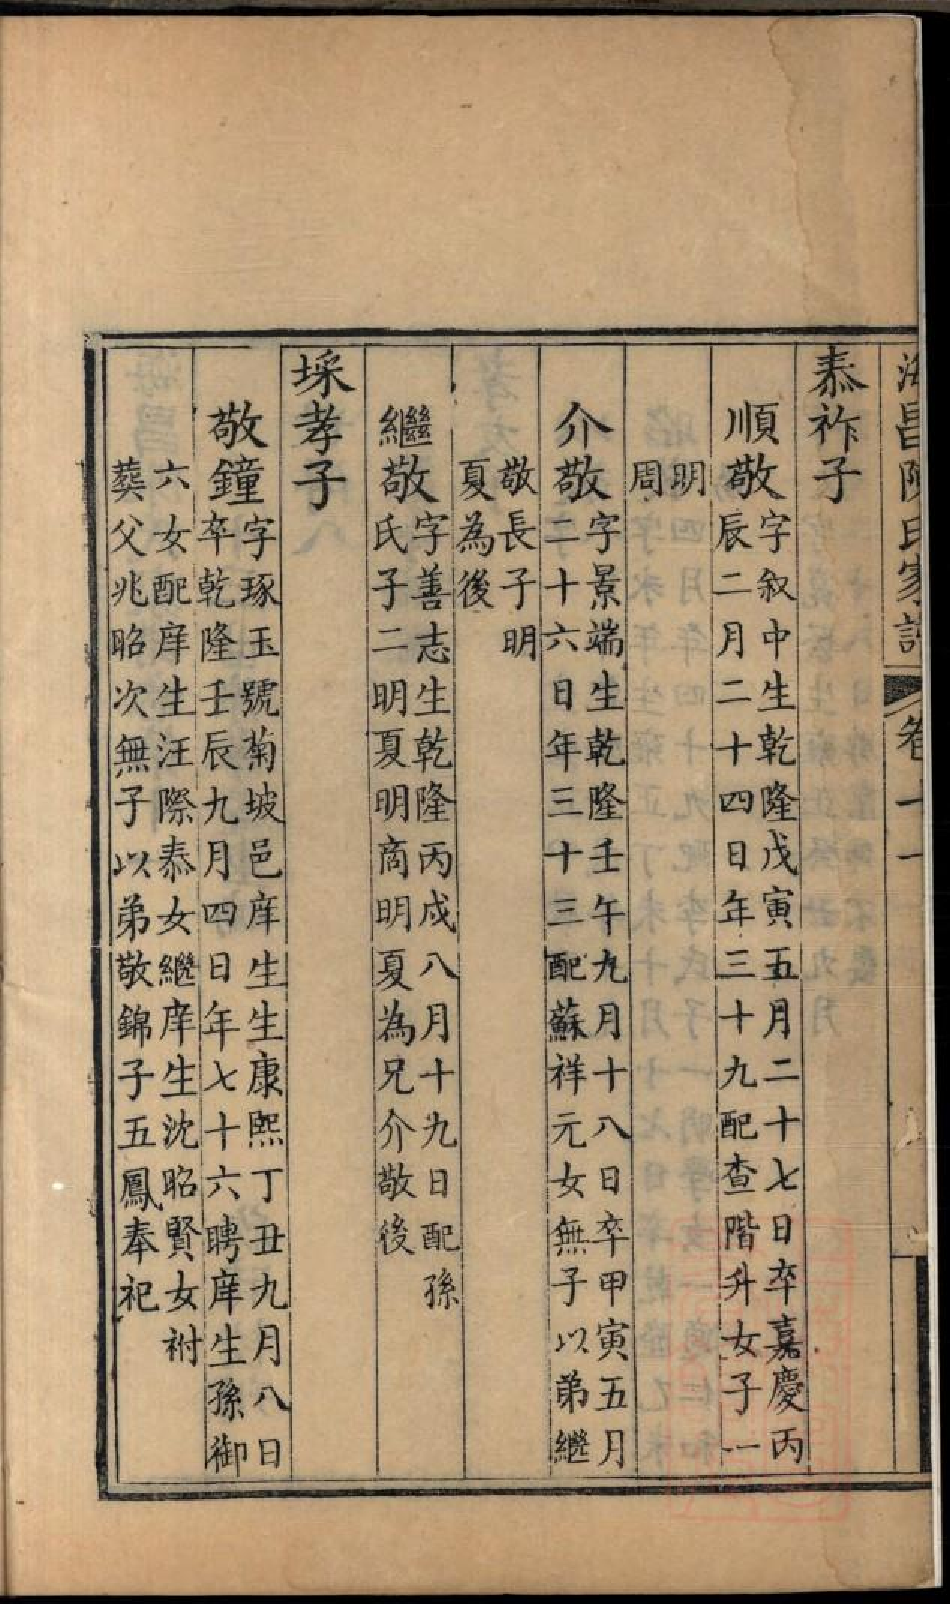 海昌陳氏家譜 卷十一
泰祚子
順敬字叙中生乾隆戊寅五月二十七日卒嘉慶丙
辰二月二十四日年三十九配查階升女子一
明
周
介敬字景端生乾隆壬午九月十八日卒甲寅五月
二十六日年三十三配蘇祥元女無子以弟繼
敬長子明
夏為後
繼敬字善志生乾隆丙戌八月十九日配孫
氏子二明夏明商明夏為兄介敬後
埰孝子
敬鐘字琢玉號菊坡邑庠生生康熙丁丑九月八日
卒乾隆壬辰九月四日年七十六聘庠生孫御
六女配庠生汪際泰女繼庠生沈昭賢女祔
葬父兆昭次無子以弟敬錦子五鳳奉祀